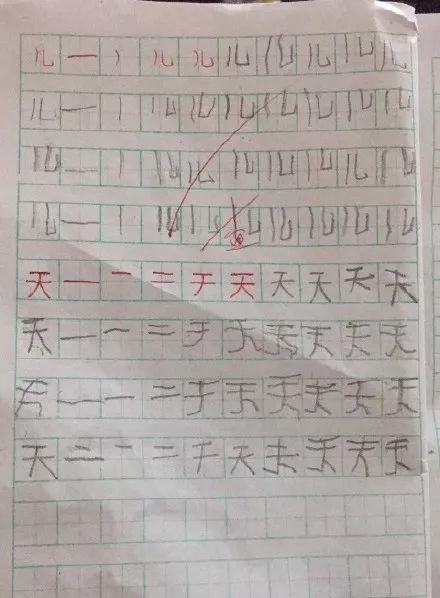 儿 一 丿 儿 儿 儿 儿 儿 儿 儿
儿 一 丨 儿 儿 儿 儿 儿 儿 儿
儿 一 丨 儿 儿 儿 儿 儿 儿 儿
儿 一 丨 儿 儿 儿 儿 儿 儿 儿
天 一 一 二 于 天 天 天 天 天
天 一 一 二 于 天 天 天 天 天
天 一 一 二 于 天 天 天 天 天
天 二 一 二 千 天 天 天 天 天